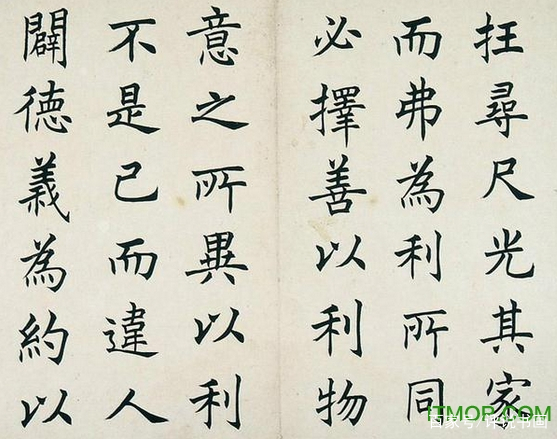 抂尋尺光其家
而弗為利所同
必擇善以利物
意之所異以利
不是已而違人
闢德義為約以
ITMOP.COM
百家号/评说书画